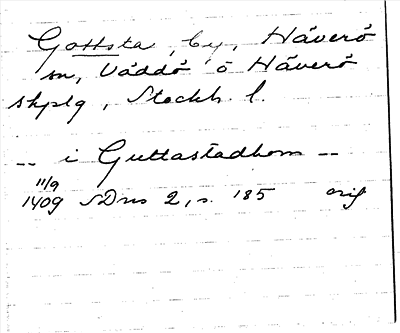 Gottsta, by, Häverö
sn, Väddö o Häverö
skplg, Stockh. l.
-- i Guttastadhom --
11/9
1409 SDns 2, s. 185 orig